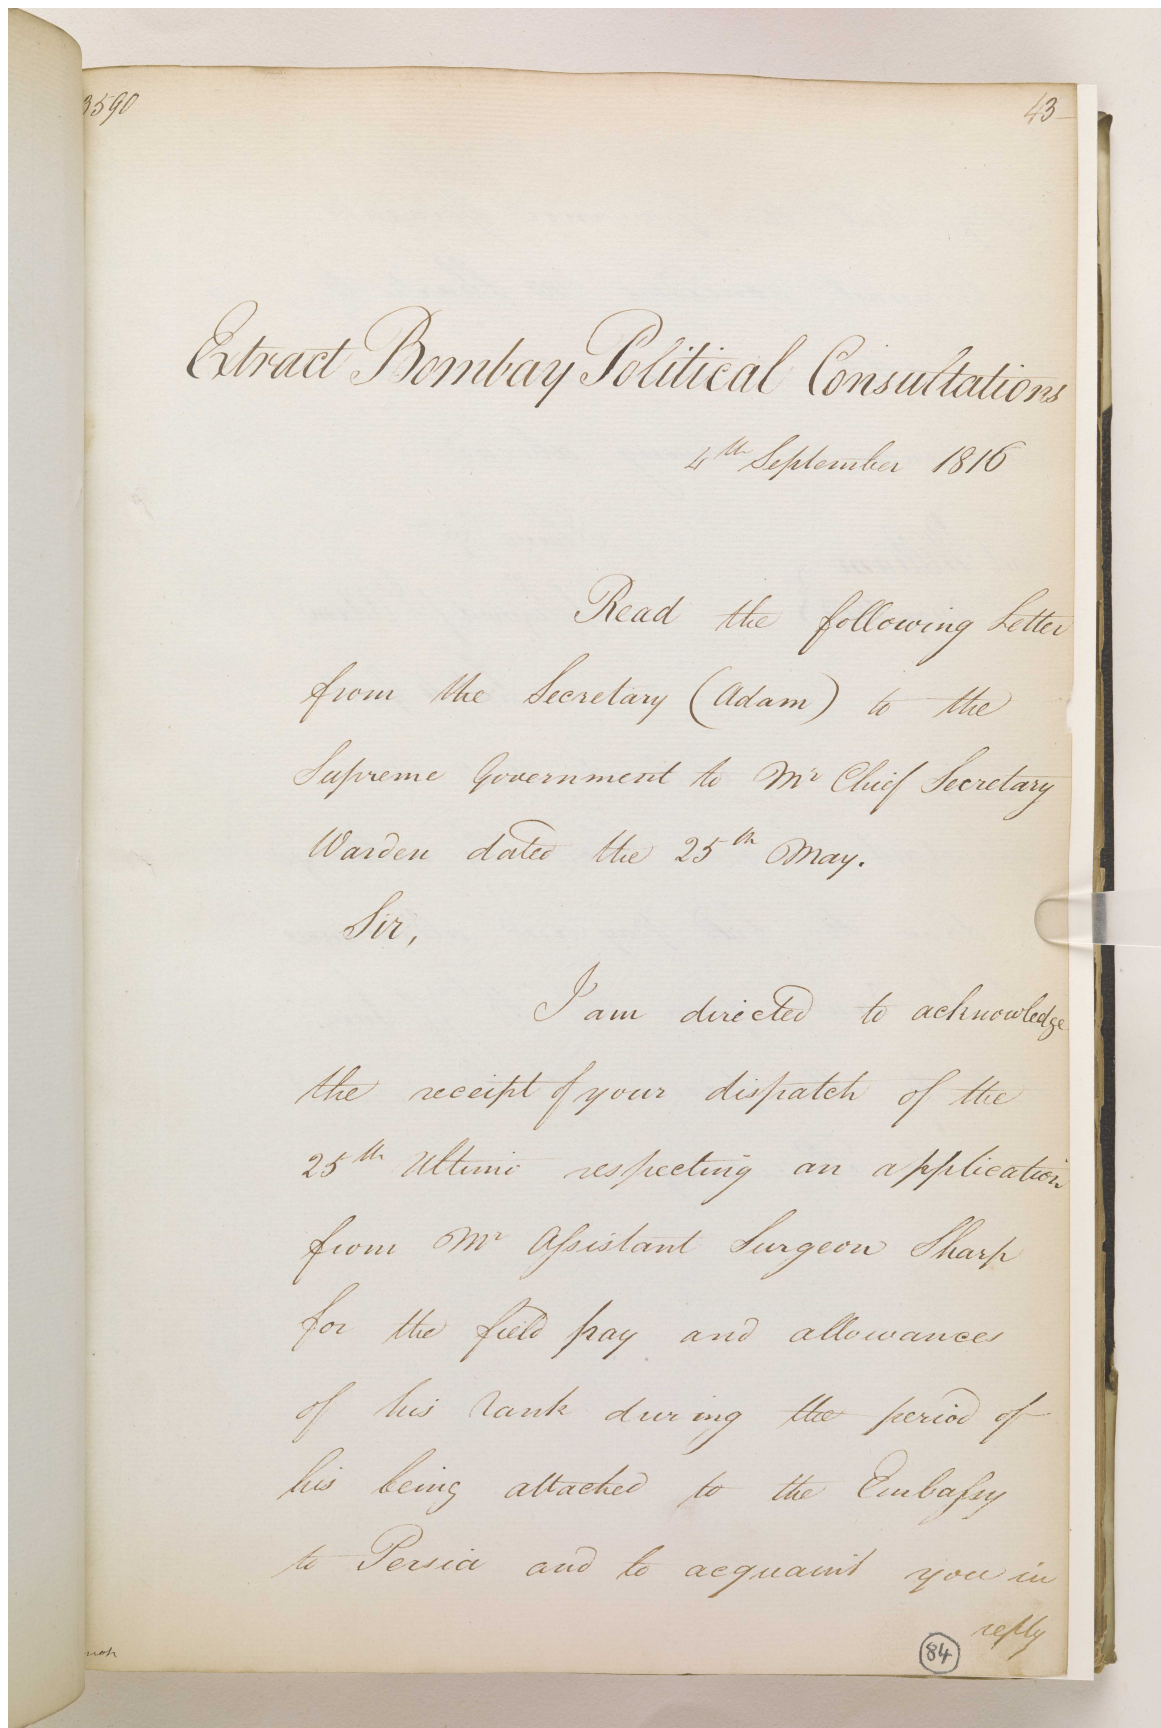 3590
43
Extract Bombay Political Consultations
4th September 1816
Read the following Letter
from the Secretary (Adam) to the
Supreme Government to Mr Chief Secretary
Warden dated the 25th May.
Sir,
I am directed to acknowledge
the receipt of your dispatch of the
25th Ultimo respecting an application
from Mr Aſsistant Surgeon Sharp
for the field pay and allowances
of his rank during the period of
his being attached to the Embaſsy
to Persia and to acquaint you in
reply
84